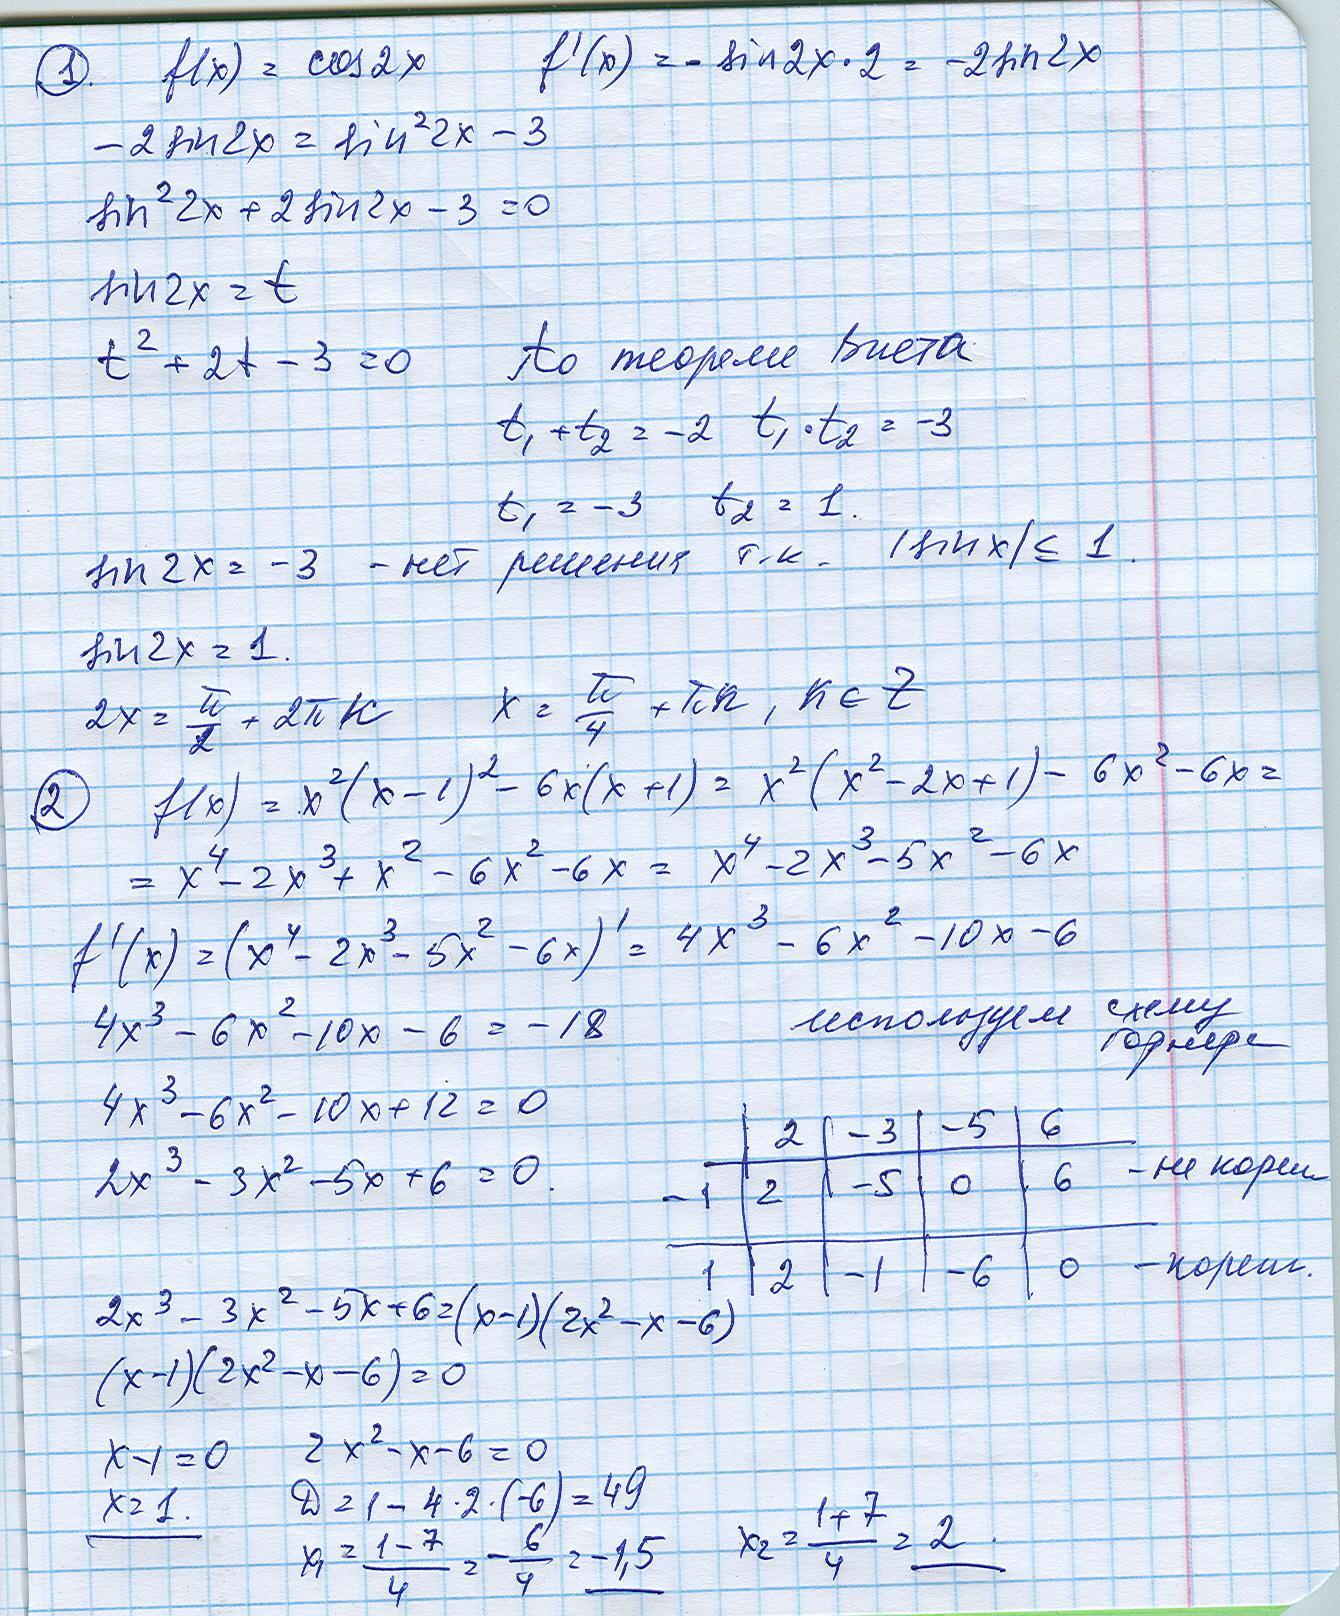 1. f(x) = cos2x f'(x) = - sin2x·2 = -2sin2x
-2sin2x = sin²2x - 3
sin²2x + 2sin2x - 3 = 0
sin2x = t
t² + 2t - 3 = 0 по теореме Виета
t₁ + t₂ = -2 t₁·t₂ = -3
t₁ = -3 t₂ = 1.
sin2x = -3 - нет решения т.к. |sinx| ≤ 1.
sin2x = 1.
2x = π/2 + 2πк x = π/4 + πк, к ∈ Z
2 f(x) = x²(x-1)² - 6x(x+1) = x²(x²-2x+1) - 6x² - 6x =
= x⁴ - 2x³ + x² - 6x² - 6x = x⁴ - 2x³ - 5x² - 6x
f'(x) = (x⁴ - 2x³ - 5x² - 6x)' = 4x³ - 6x² - 10x - 6
4x³ - 6x² - 10x - 6 = -18 используем схему
Горнера
4x³ - 6x² - 10x + 12 = 0
2 -3 -5 6
2x³ - 3x² - 5x + 6 = 0.
-1 2 -5 0 6 - не корень
1 2 -1 -6 0 - корень.
2x³ - 3x² - 5x + 6 = (x-1)(2x² - x - 6)
(x-1)(2x² - x - 6) = 0
x - 1 = 0 2x² - x - 6 = 0
x = 1. D = 1 - 4·2·(-6) = 49
x₁ = (1-7)/4 = -6/4 = -1,5 x₂ = (1+7)/4 = 2.